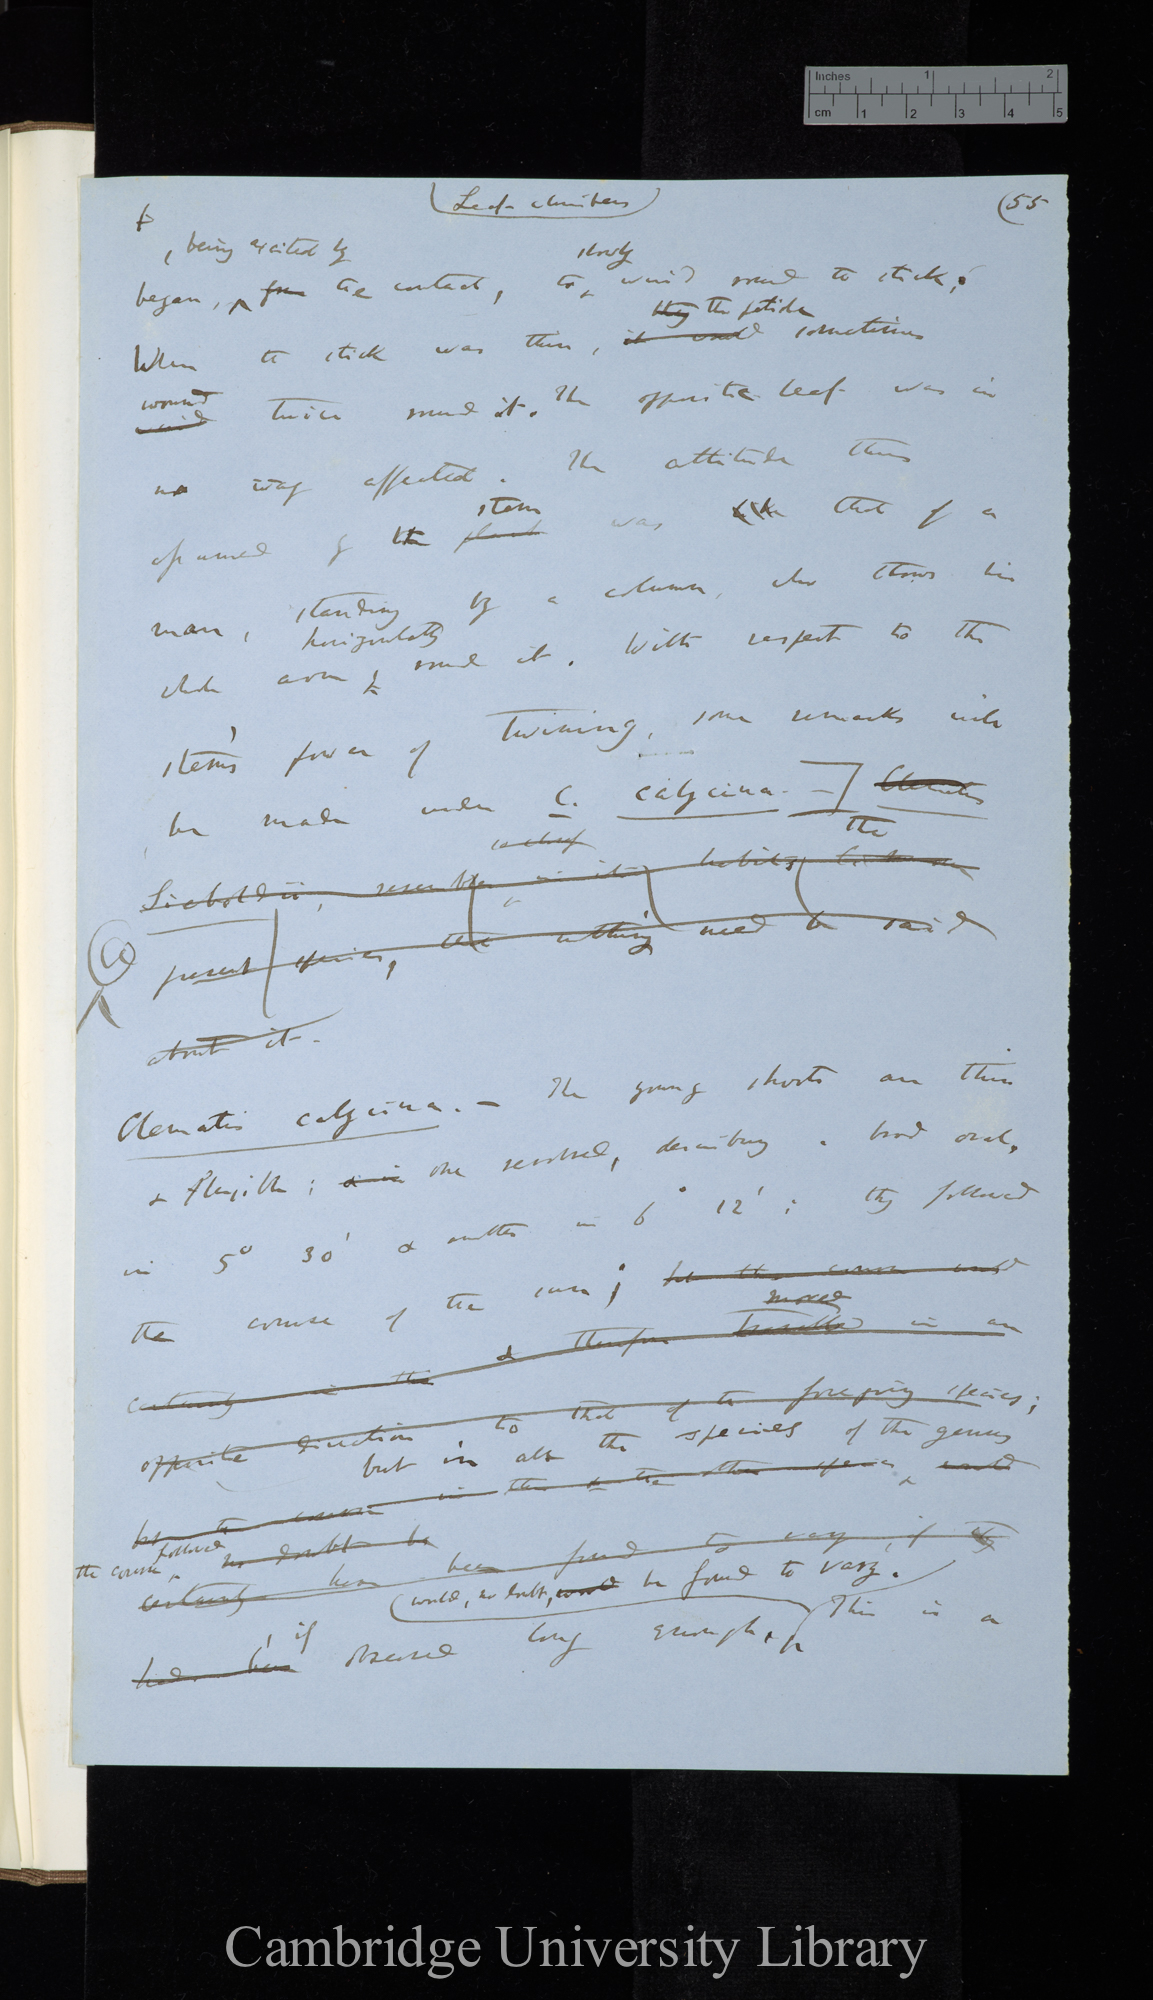 Inches 1 2
cm 1 2 3 4 5
Leaf-climbers
(55
, being excited by slowly
began, from the contact, to wind round the stick;
they the petiole
When the stick was thin, it would sometimes
wound
wind twice round it. The opposite leaf was in
no way affected. The attitude thus
stem
assumed by the plant was like that of a
man, standing by a column, who throws his
horizontally
whole arm round it. With respect to the
stem's power of twining, some remarks will
be made under C. calycina. —] Clematis
the
Sieboldii, resembles in its habits
present species, that nothing need be said
about it.
Clematis calycina. — The young shoots are thin
& flexible; one revolved, describing a broad oval,
in 5° 30' & another in 6° 12'; they followed
the course of the sun; but the course would
moved
certainly in the & therefore travelled in an
opposite direction to that of the foregoing species;
but in all the species of the genus
but the course in this & the other species would
the course followed no doubt be
certainly have been found to vary, if they
would, no doubt, would be found to vary.
had been if observed long enough. This is a
Cambridge University Library